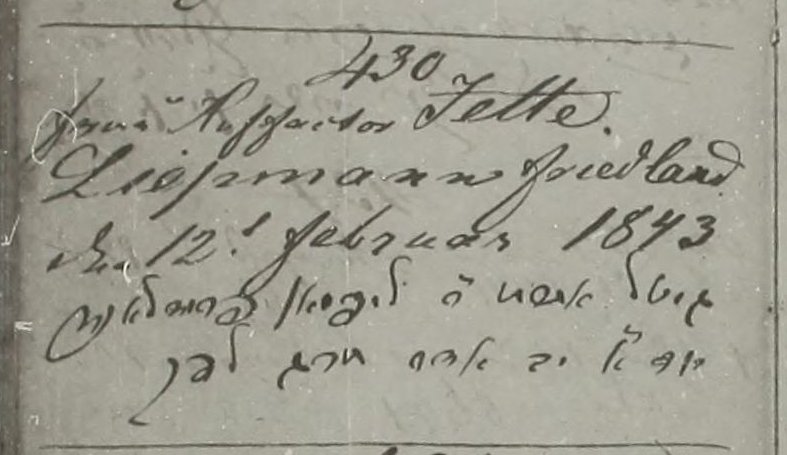 430
Frau Ruffactor Jette
Liepmann Friedland
d. 12t Februar 1843
גיטל אשת ר ליפמן פרידלאנד
יום א יב אדר תרג לפק